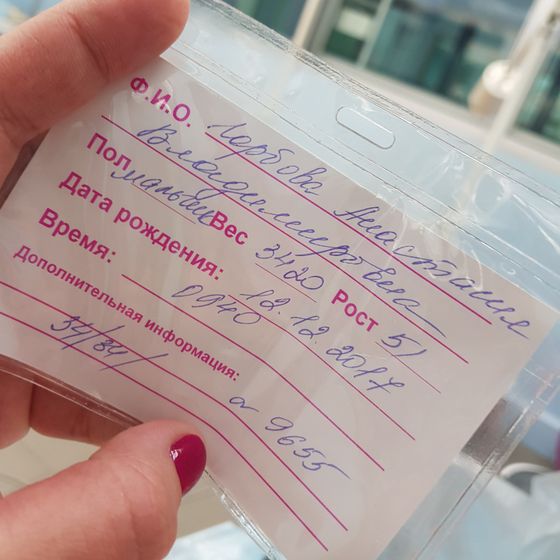 Ф.И.О. Горбова Анастасия
Владимировна
Пол мальчик Вес 3420 Рост 51
Дата рождения: 12.12.2017
Время: 0940
Дополнительная информация:
34/34/ 9655